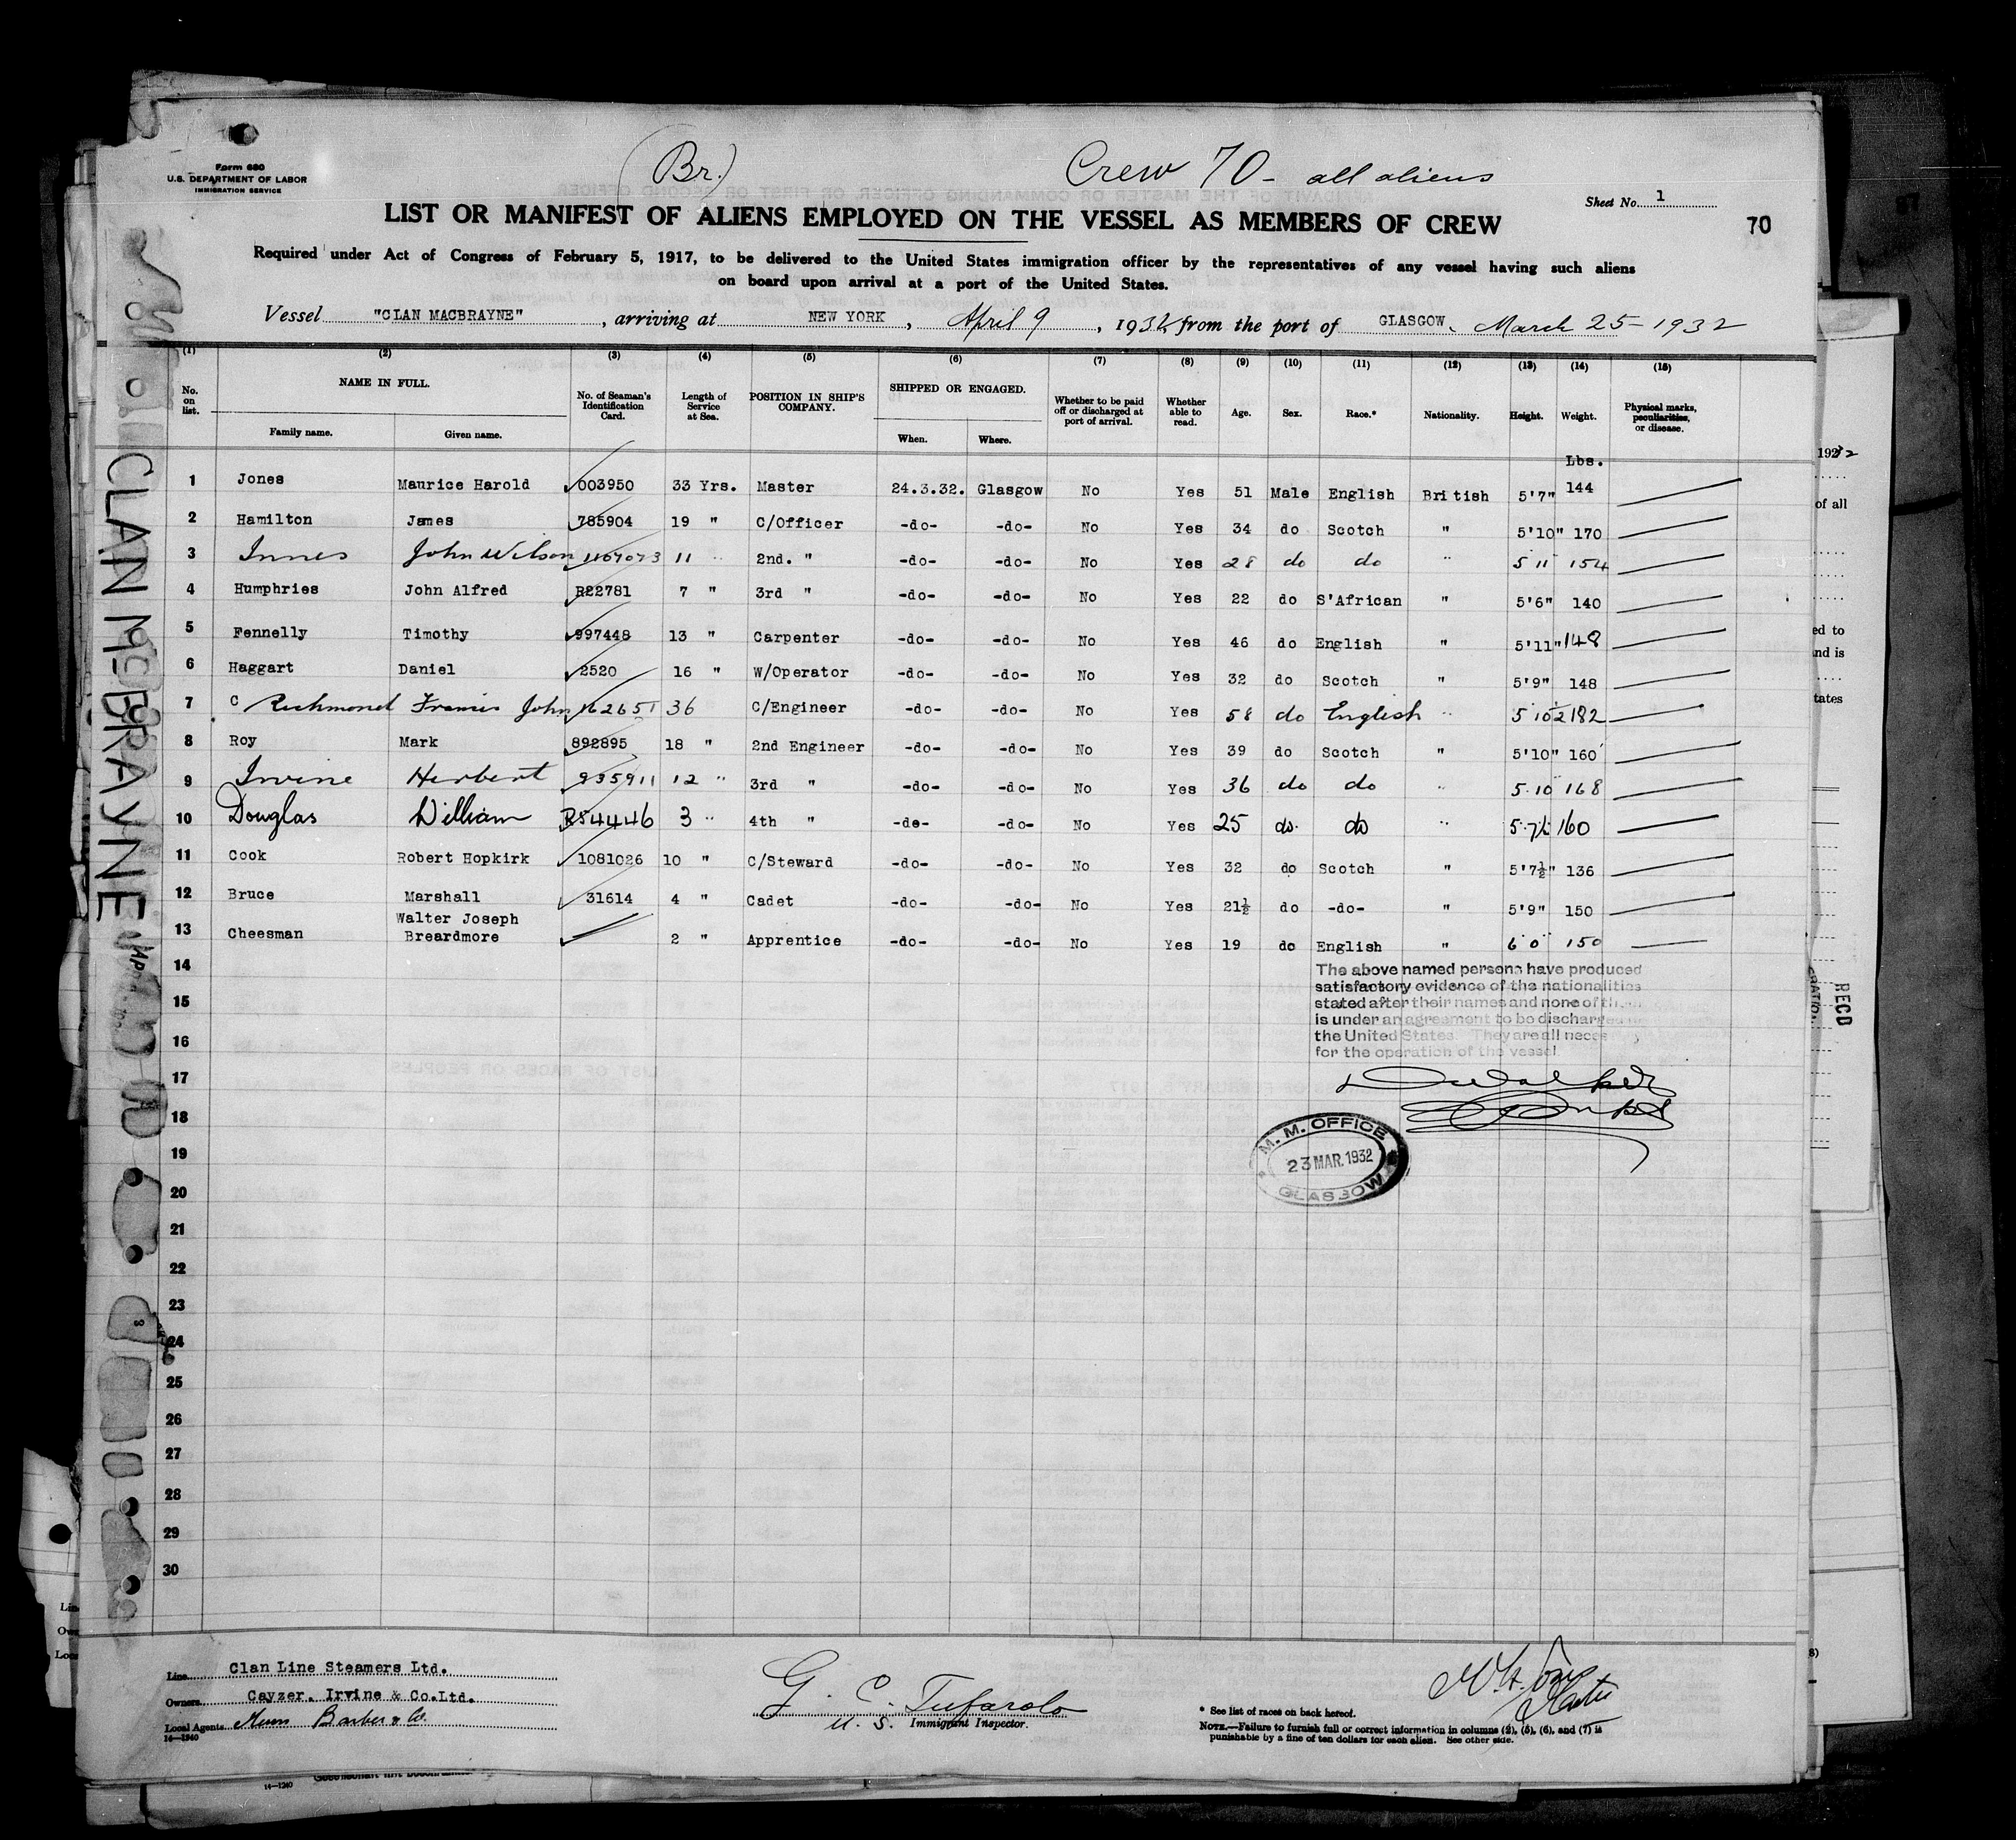 Form 680
U.S. DEPARTMENT OF LABOR
IMMIGRATION SERVICE
(Br.)
Crew 70 - all aliens
Sheet No. 1
LIST OR MANIFEST OF ALIENS EMPLOYED ON THE VESSEL AS MEMBERS OF CREW
70
Required under Act of Congress of February 5, 1917, to be delivered to the United States immigration officer by the representatives of any vessel having such aliens
on board upon arrival at a port of the United States.
Vessel "CLAN MACBRAYNE", arriving at NEW YORK, April 9, 1932 from the port of GLASGOW, March 25-1932
(1) (2) (3) (4) (5) (6) (7) (8) (9) (10) (11) (12) (13) (14) (15)
No. on list. NAME IN FULL. Family name. Given name. No. of Seaman's Identification Card. Length of Service at Sea. POSITION IN SHIP'S COMPANY. SHIPPED OR ENGAGED. When. Where. Whether to be paid off or discharged at port of arrival. Whether able to read. Age. Sex. Race.* Nationality. Height. Weight. Physical marks, peculiarities, or disease.
Lbs.
1 Jones Maurice Harold 003950 33 Yrs. Master 24.3.32. Glasgow No Yes 51 Male English British 5'7" 144
2 Hamilton James 785904 19 " C/Officer -do- -do- No Yes 34 do Scotch " 5'10" 170
3 Innes John Wilson 1167073 11 " 2nd. " -do- -do- No Yes 28 do do " 5 11 154
4 Humphries John Alfred R22781 7 " 3rd " -do- -do- No Yes 22 do S'African " 5'6" 140
5 Fennelly Timothy 997448 13 " Carpenter -do- -do- No Yes 46 do English " 5'11" 148
6 Haggart Daniel 2520 16 " W/Operator -do- -do- No Yes 32 do Scotch " 5'9" 148
7 C Richmond Francis John 162651 36 C/Engineer -do- -do- No Yes 58 do English " 5 10½ 182
8 Roy Mark 892895 18 " 2nd Engineer -do- -do- No Yes 39 do Scotch " 5'10" 160
9 Irvine Herbert 935911 12 " 3rd " -do- -do- No Yes 36 do do " 5.10 168
10 Douglas William R54446 3 " 4th " -do- -do- No Yes 25 do. do " 5.7½ 160
11 Cook Robert Hopkirk 1081026 10 " C/Steward -do- -do- No Yes 32 do Scotch " 5'7½" 136
12 Bruce Marshall 31614 4 " Cadet -do- -do- No Yes 21½ do -do- " 5'9" 150
13 Cheesman Walter Joseph Breardmore 2 " Apprentice -do- -do- No Yes 19 do English " 6'0" 150
14
15
16
17
18
19
20
21
22
23
24
25
26
27
28
29
30
The above named persons have produced
satisfactory evidence of the nationalities
stated after their names and none of them
is under an agreement to be discharged
the United States. They are all
for the operation of the vessel
M. M. OFFICE
23 MAR. 1932
GLASGOW
CLAN McBRAYNE
Line Clan Line Steamers Ltd.
Owners Cayzer, Irvine & Co.Ltd.
Local Agents Barber & Co.
14-1240
G. C. Tufarolo
U. S. Immigrant Inspector.
M. H. Jones
Master
* See list of races on back hereof.
NOTE.—Failure to furnish full or correct information in columns (2), (5), (6), and (7) is
punishable by a fine of ten dollars for each alien. See other side.
14-1240
1932
of all
ed to
and is
tates
RECD